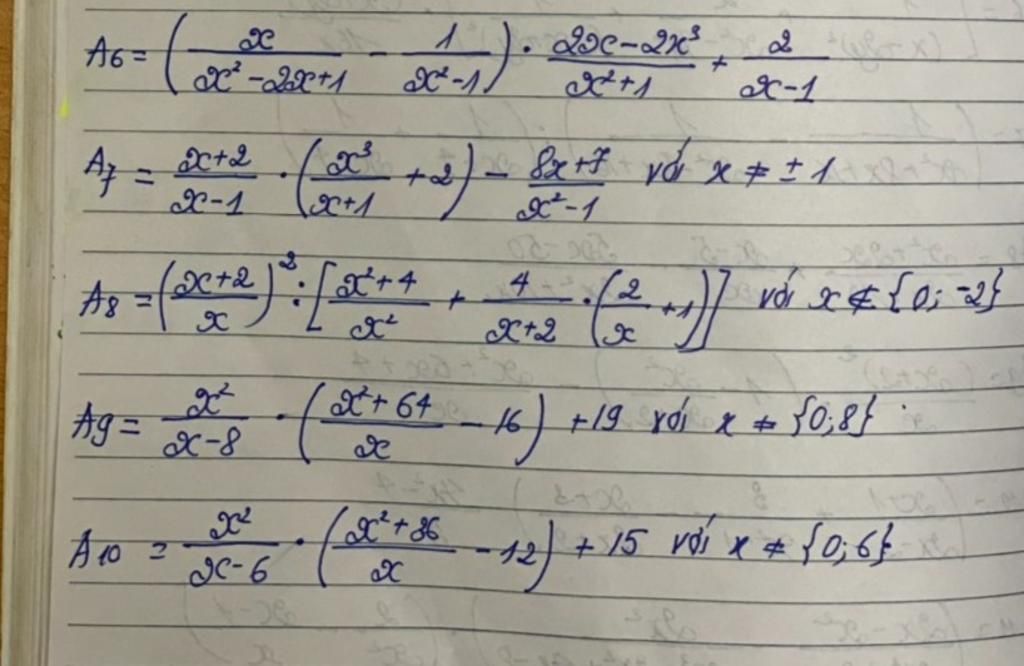 A6 = (x/(x² - 2x + 1) - 1/(x² - 1)) · (2x - 2x³)/(x² + 1) + 2/(x - 1)
A7 = (x + 2)/(x - 1) · (x³/(x + 1) + 2) - (8x + 7)/(x² - 1) với x ≠ ± 1
A8 = ((x + 2)/x)² : [(x² + 4)/x² + 4/(x + 2) · (2/x + 1)] với x ∉ {0; -2}
A9 = x²/(x - 8) · ((x² + 64)/x - 16) + 19 với x ≠ {0; 8}
A10 = x²/(x - 6) · ((x² + 36)/x - 12) + 15 với x ≠ {0; 6}